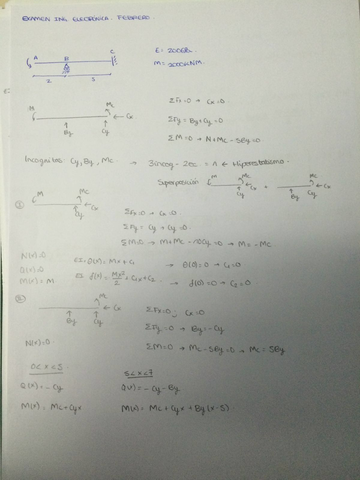 EXAMEN ING. ELECTRÓNICA. FEBRERO.
A B C
E: 200GPa.
M: 2000kNM.
M Mc ← Cx
By Cy
ΣFx=0 → Cx=0.
ΣFy= By+Cy=0
ΣM=0 → M+Mc-5By=0
Incognitas: Cy, By, Mc → 3incog - 2ec = 1 ← Hiperestatismo.
Superposición M Mc ← Cx Cy + Mc ← Cx By Cy
① M Mc ← Cx Cy
ΣFx=0 → Cx=0.
ΣFy= Cy → Cy=0
ΣM=0 → M+Mc-10Cy=0 → M=-Mc
N(x)=0
Q(x)=0
M(x)=M
EI·θ(x)= Mx+C₁ → θ(0)=0 → C₁=0
EI·f(x)= Mx²/2 + C₁x+C₂ → f(0)=0 → C₂=0
② Mc ← Cx
By Cy
ΣFx=0 ; Cx=0.
ΣFy=0 → By=-Cy
N(x)=0
ΣM=0 → Mc-5By=0 → Mc=5By
0<x<5 5<x<7
Q(x)=-Cy Q(x)=-Cy-By
M(x)= Mc+Cyx M(x)= Mc+Cyx+By(x-5)